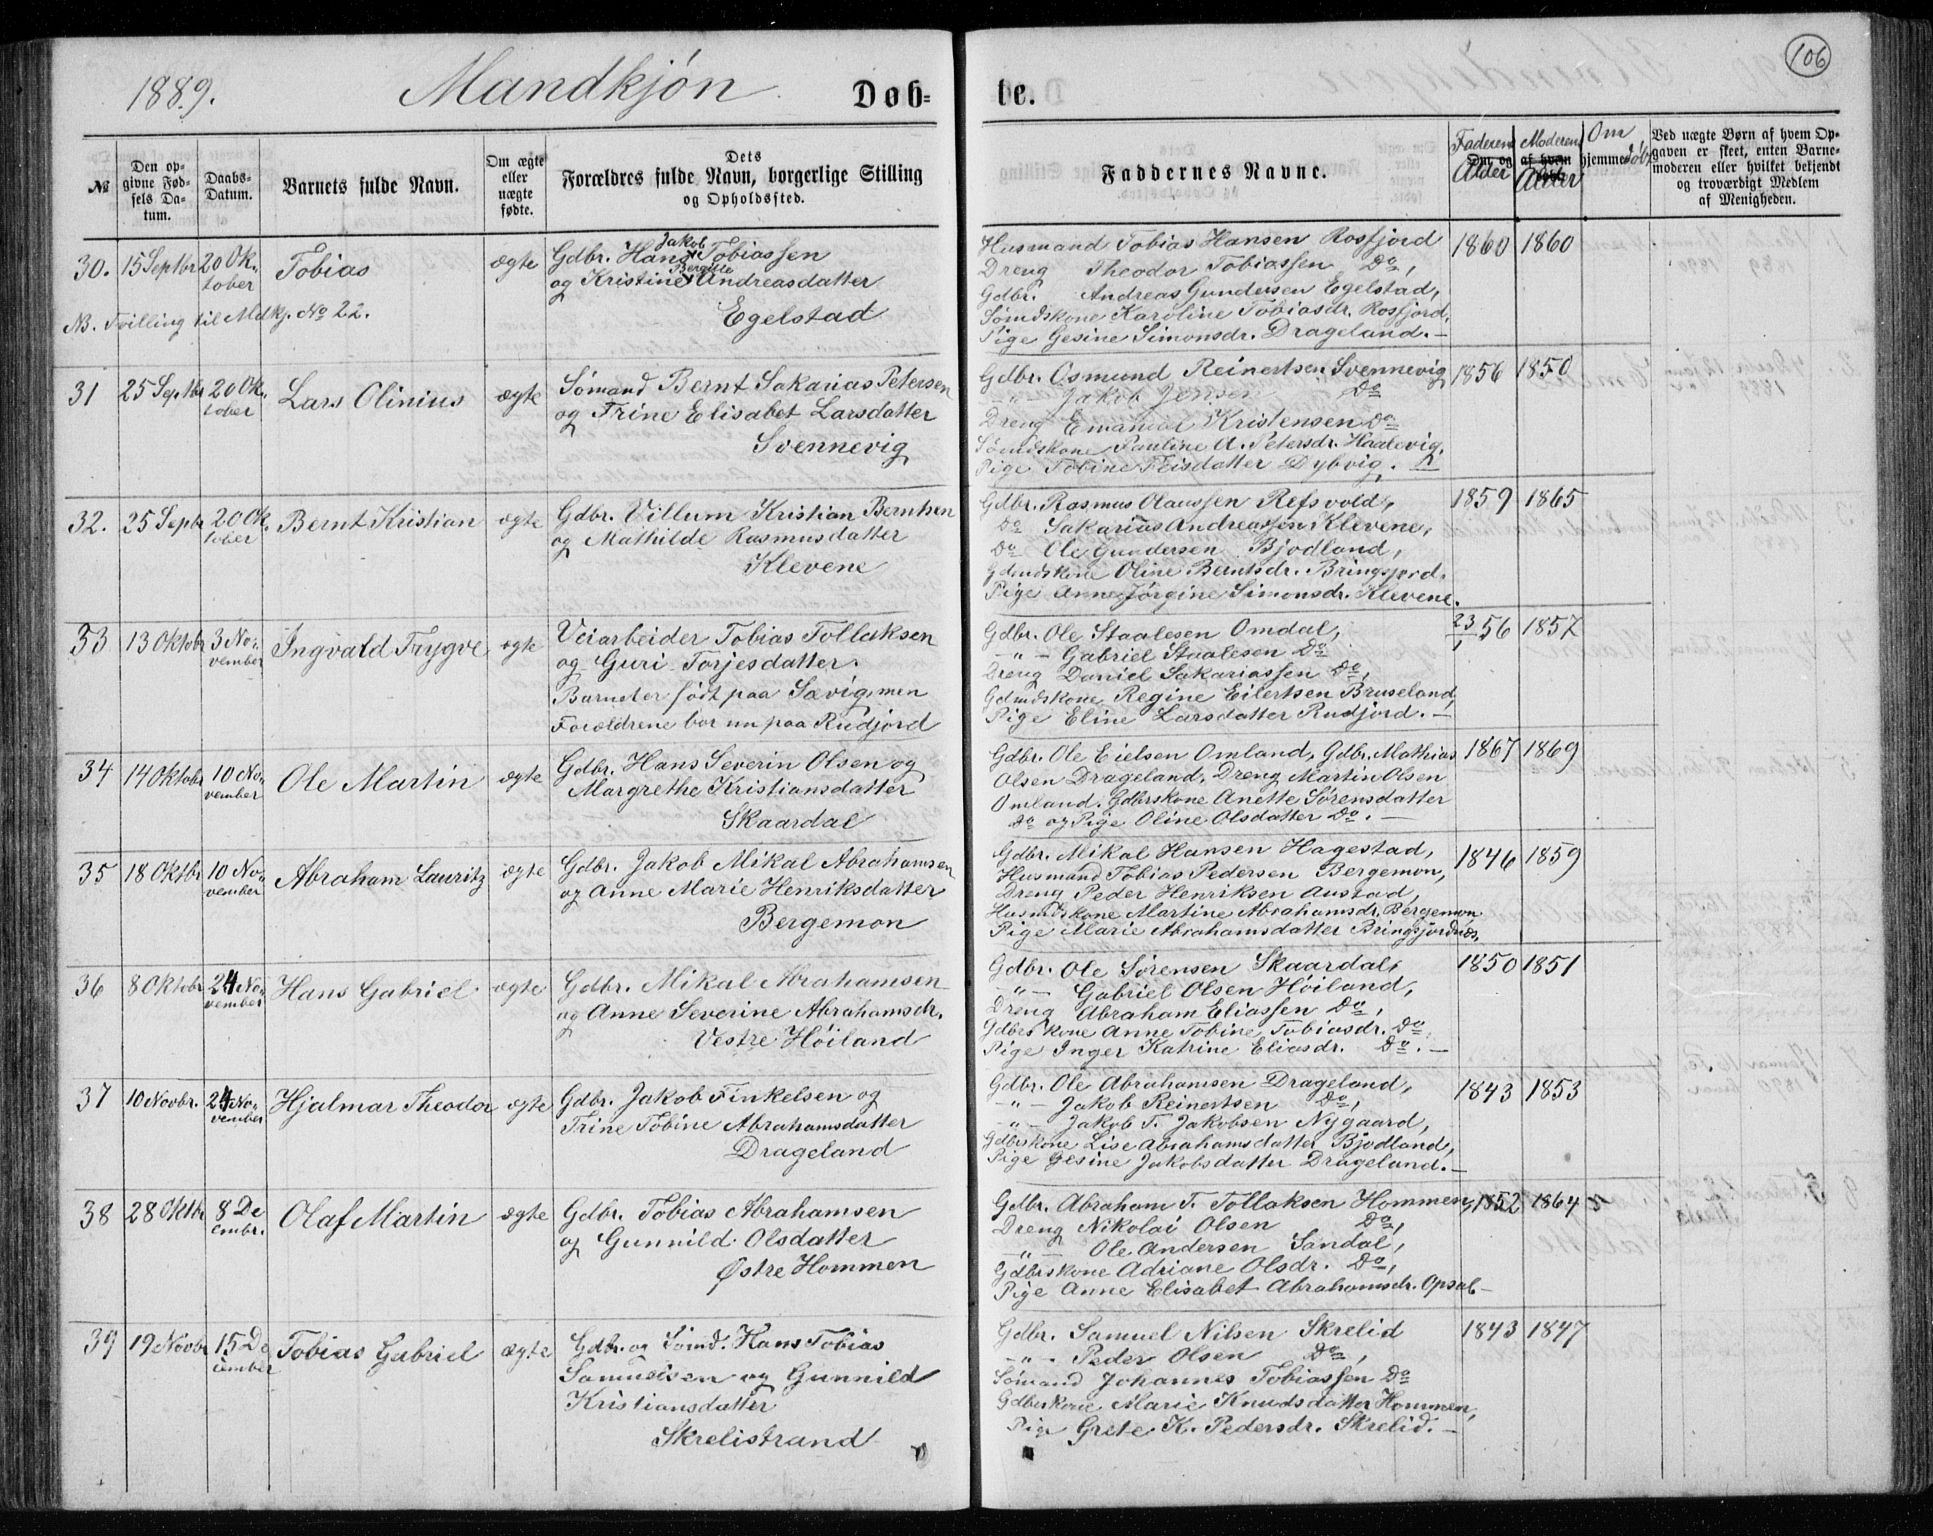 1889. Mandkjøn Døb=
№
Den op-
givne Fød-
sels Da-
tum.
Daabs-
Datum.
Barnets fulde Navn.
Om ægte
eller
nægte
fødte.
Dets
Forældres fulde Navn, borgerlige Stilling
og Opholdssted.
30. 15 Septbr 20 Ok-
tober
Tobias
ægte
Gdbr. Hans Jakob Tobiassen
og Kristine Bergitte Andreasdatter
Egelstad
NB. Tvilling til Mdkj. No 22.
31 25 Septbr 20 Ok-
tober
Lars Olinius
ægte
Sømand Bernt Sakarias Petersen
og Trine Elisabet Larsdatter
Svennevig
32. 25 Septbr 20 Ok-
tober
Bernt Kristian
ægte
Gdbr. Villum Kristian Berntsen
og Mathilde Rasmusdatter
Klevene
33 13 Oktobr 3 No-
vember
Ingvald Trygve
ægte
Veiarbeider Tobias Tollaksen
og Guri Torjesdatter.
Barnet er født paa Sævig, men
Forældrene bor nu paa Rudjord
34 14 Oktobr 10 No-
vember
Ole Martin
ægte
Gdbr. Hans Severin Olsen og
Margrethe Kristiansdatter
Skaardal
35 18 Oktbr 10 No-
vember
Abraham Lauritz
ægte
Gdbr. Jakob Mikal Abrahamsen
og Anne Marie Henriksdatter
Bergemon
36 8 Oktobr 24 No-
vember
Hans Gabriel
ægte
Gdbr. Mikal Abrahamsen
og Anne Severine Abrahamsdr.
Vestre Høiland
37 10 Novbr. 24 No-
vember
Hjalmar Theodor
ægte
Gdbr. Jakob Finkelsen og
Trine Tobine Abrahamsdatter
Drageland
38 28 Oktbr 8 De-
cembr.
Olaf Martin
ægte
Gdbr. Tobias Abrahamsen
og Gunnild Olsdatter
Østre Hommen
39 19 Novbr 15 De-
cember
Tobias Gabriel
ægte
Gdbr. og Sømd. Hans Tobias
Samuelsen og Gunnild
Kristiansdatter
Skrelistrand
106
te.
Faddernes Navne.
Faderens
Alder
Moderens
Alder
Om
hjemmedøbt
Ved uægte Børn af hvem Op-
gaven er skeet, enten Barne-
moderen eller hvilket bekjendt
og troværdigt Medlem
af Menigheden.
Husmand Tobias Hansen Rosfjord 1860 1860
Dreng Theodor Tobiassen Do,
Gdbr. Andreas Gundersen Egelstad,
Sømdskone Karoline Tobiasdr. Rosfjord,
Pige Gesine Simonsdr. Drageland. —
Gdbr. Osmund Reinertsen Svennevig 1856 1850
—"— Jakob Jensen Do
Dreng Emanuel Kristensen Do
Sømdskone Pauline A. Petersdr. Haalevig.
Pige Tobine Teisdatter Dybvig.
Gdbr. Rasmus Olaussen Refsvold, 1859 1865
Do Sakarias Andreassen Klevene,
Do Ole Gundersen Bjodland,
Gdmdskone Oline Berntsdr. Bringsjord.
Pige Anne Jørgine Simonsdr. Klevene.
Gdbr. Ole Staalesen Omdal, 23/1 56 1857
—"— Gabriel Staalesen Do
Dreng Daniel Sakariassen Do,
Gdmdskone Regine Eilertsen Bruseland,
Pige Eline Larsdatter Rudjord. —
Gdbr. Ole Eielsen Omland, Gdbr. Mathias 1867 1869
Olsen Drageland, Dreng Martin Olsen
Omland. Gdbrskone Anette Sørensdatter
Do og Pige Oline Olsdatter Do. —
Gdbr. Mikal Hansen Hagestad, 1846 1859
Husmand Tobias Pedersen Bergemon,
Dreng Peder Henriksen Austad,
Husmdskone Martine Abrahamsdr. Bergemon
Pige Marie Abrahamsdatter Bringsjordnes.
Gdbr. Ole Sørensen Skaardal, 1850 1851
—"— Gabriel Olsen Høiland,
Dreng Abraham Eliassen Do,
Gdbrskone Anne Tobine Tobiasdr. Do
Pige Inger Katrine Eliasdr. Do. —
Gdbr. Ole Abrahamsen Drageland, 1843 1853
—"— Jakob Reinertsen Do,
—"— Jakob T. Jakobsen Nygaard,
Gdbrskone Lise Abrahamsdatter Bjodland,
Pige Gesine Jakobsdatter Drageland. —
Gdbr. Abraham T. Tollaksen Hommen, 1852 1864
Dreng Nikolai Olsen Do,
—"— Ole Andersen Sandal,
Gdbrskone Adriane Olsdr. Do,
Pige Anne Elisabet Abrahamsdr. Opsal —
Gdbr. Samuel Nilsen Skrelid 1843 1847
—"— Peder Olsen Do,
Sømand Johannes Tobiassen Do
Gdbrskone Marie Knudsdatter Hommen,
Pige Grete K. Pedersdr. Skrelid. —